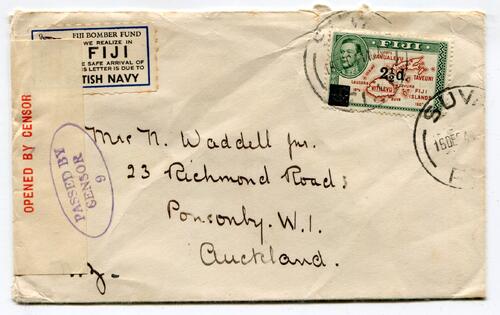 FIJI BOMBER FUND
WE REALIZE IN
FIJI
SAFE ARRIVAL OF
IS LETTER IS DUE TO
TISH NAVY
OPENED BY CENSOR
PASSED BY
CENSOR
9
FIJI
2½d.
VANUALEVU
TAVEUNI
VITI LEVU
FIJI
ISLANDS
SUVA
Mrs N. Waddell jnr.
23 Richmond Road;
Ponsonby. W.1.
Auckland.